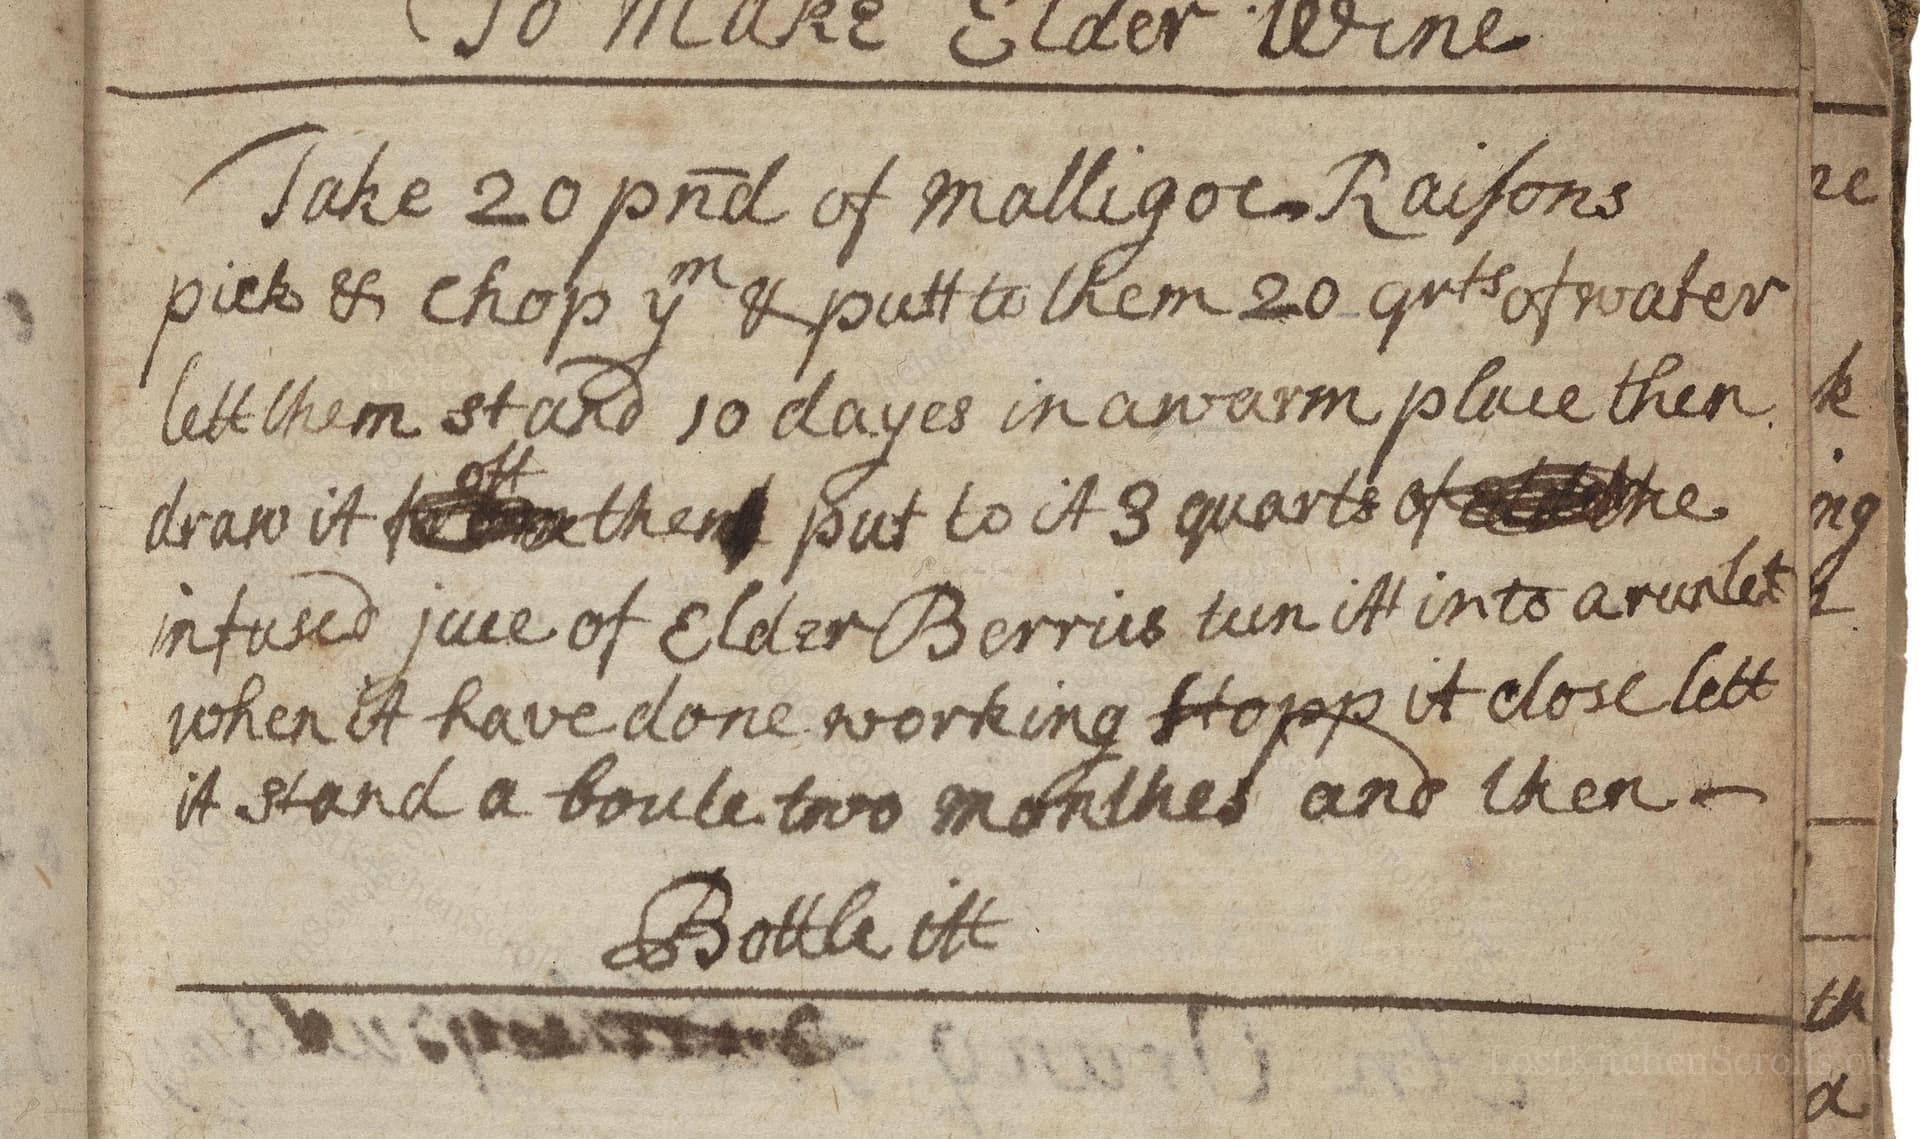 To Make Elder Wine
Take 20 pn̄d of Malligoe Raisons
pick & chop yᵐ & putt to them 20 qrᵗˢ of water
lett them stand 10 dayes in a warm place then
draw it off then put to it 3 quarts of the
infused juce of Elder Berries tun itt into a runlet
when it have done working stopp it close lett
it stand a boute two monthes and then
Bottle itt
LostKitchenScrolls.or